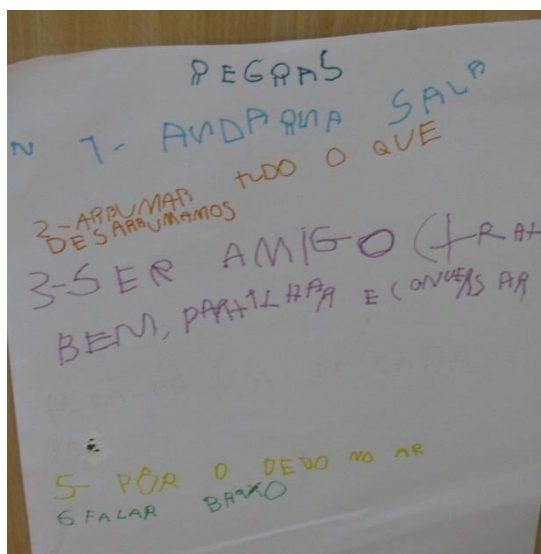 REGRAS
N 1- ANDAR NA SALA
2-ARRUMAR TUDO O QUE
DESARRUMAMOS
3-SER AMIGO (TRAT
BEM, PARTILHAR E CONVERSAR
5- PÔR O DEDO NO AR
6 FALAR BAIXO